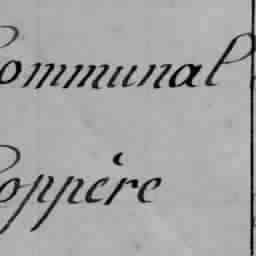 Communal
Coppère